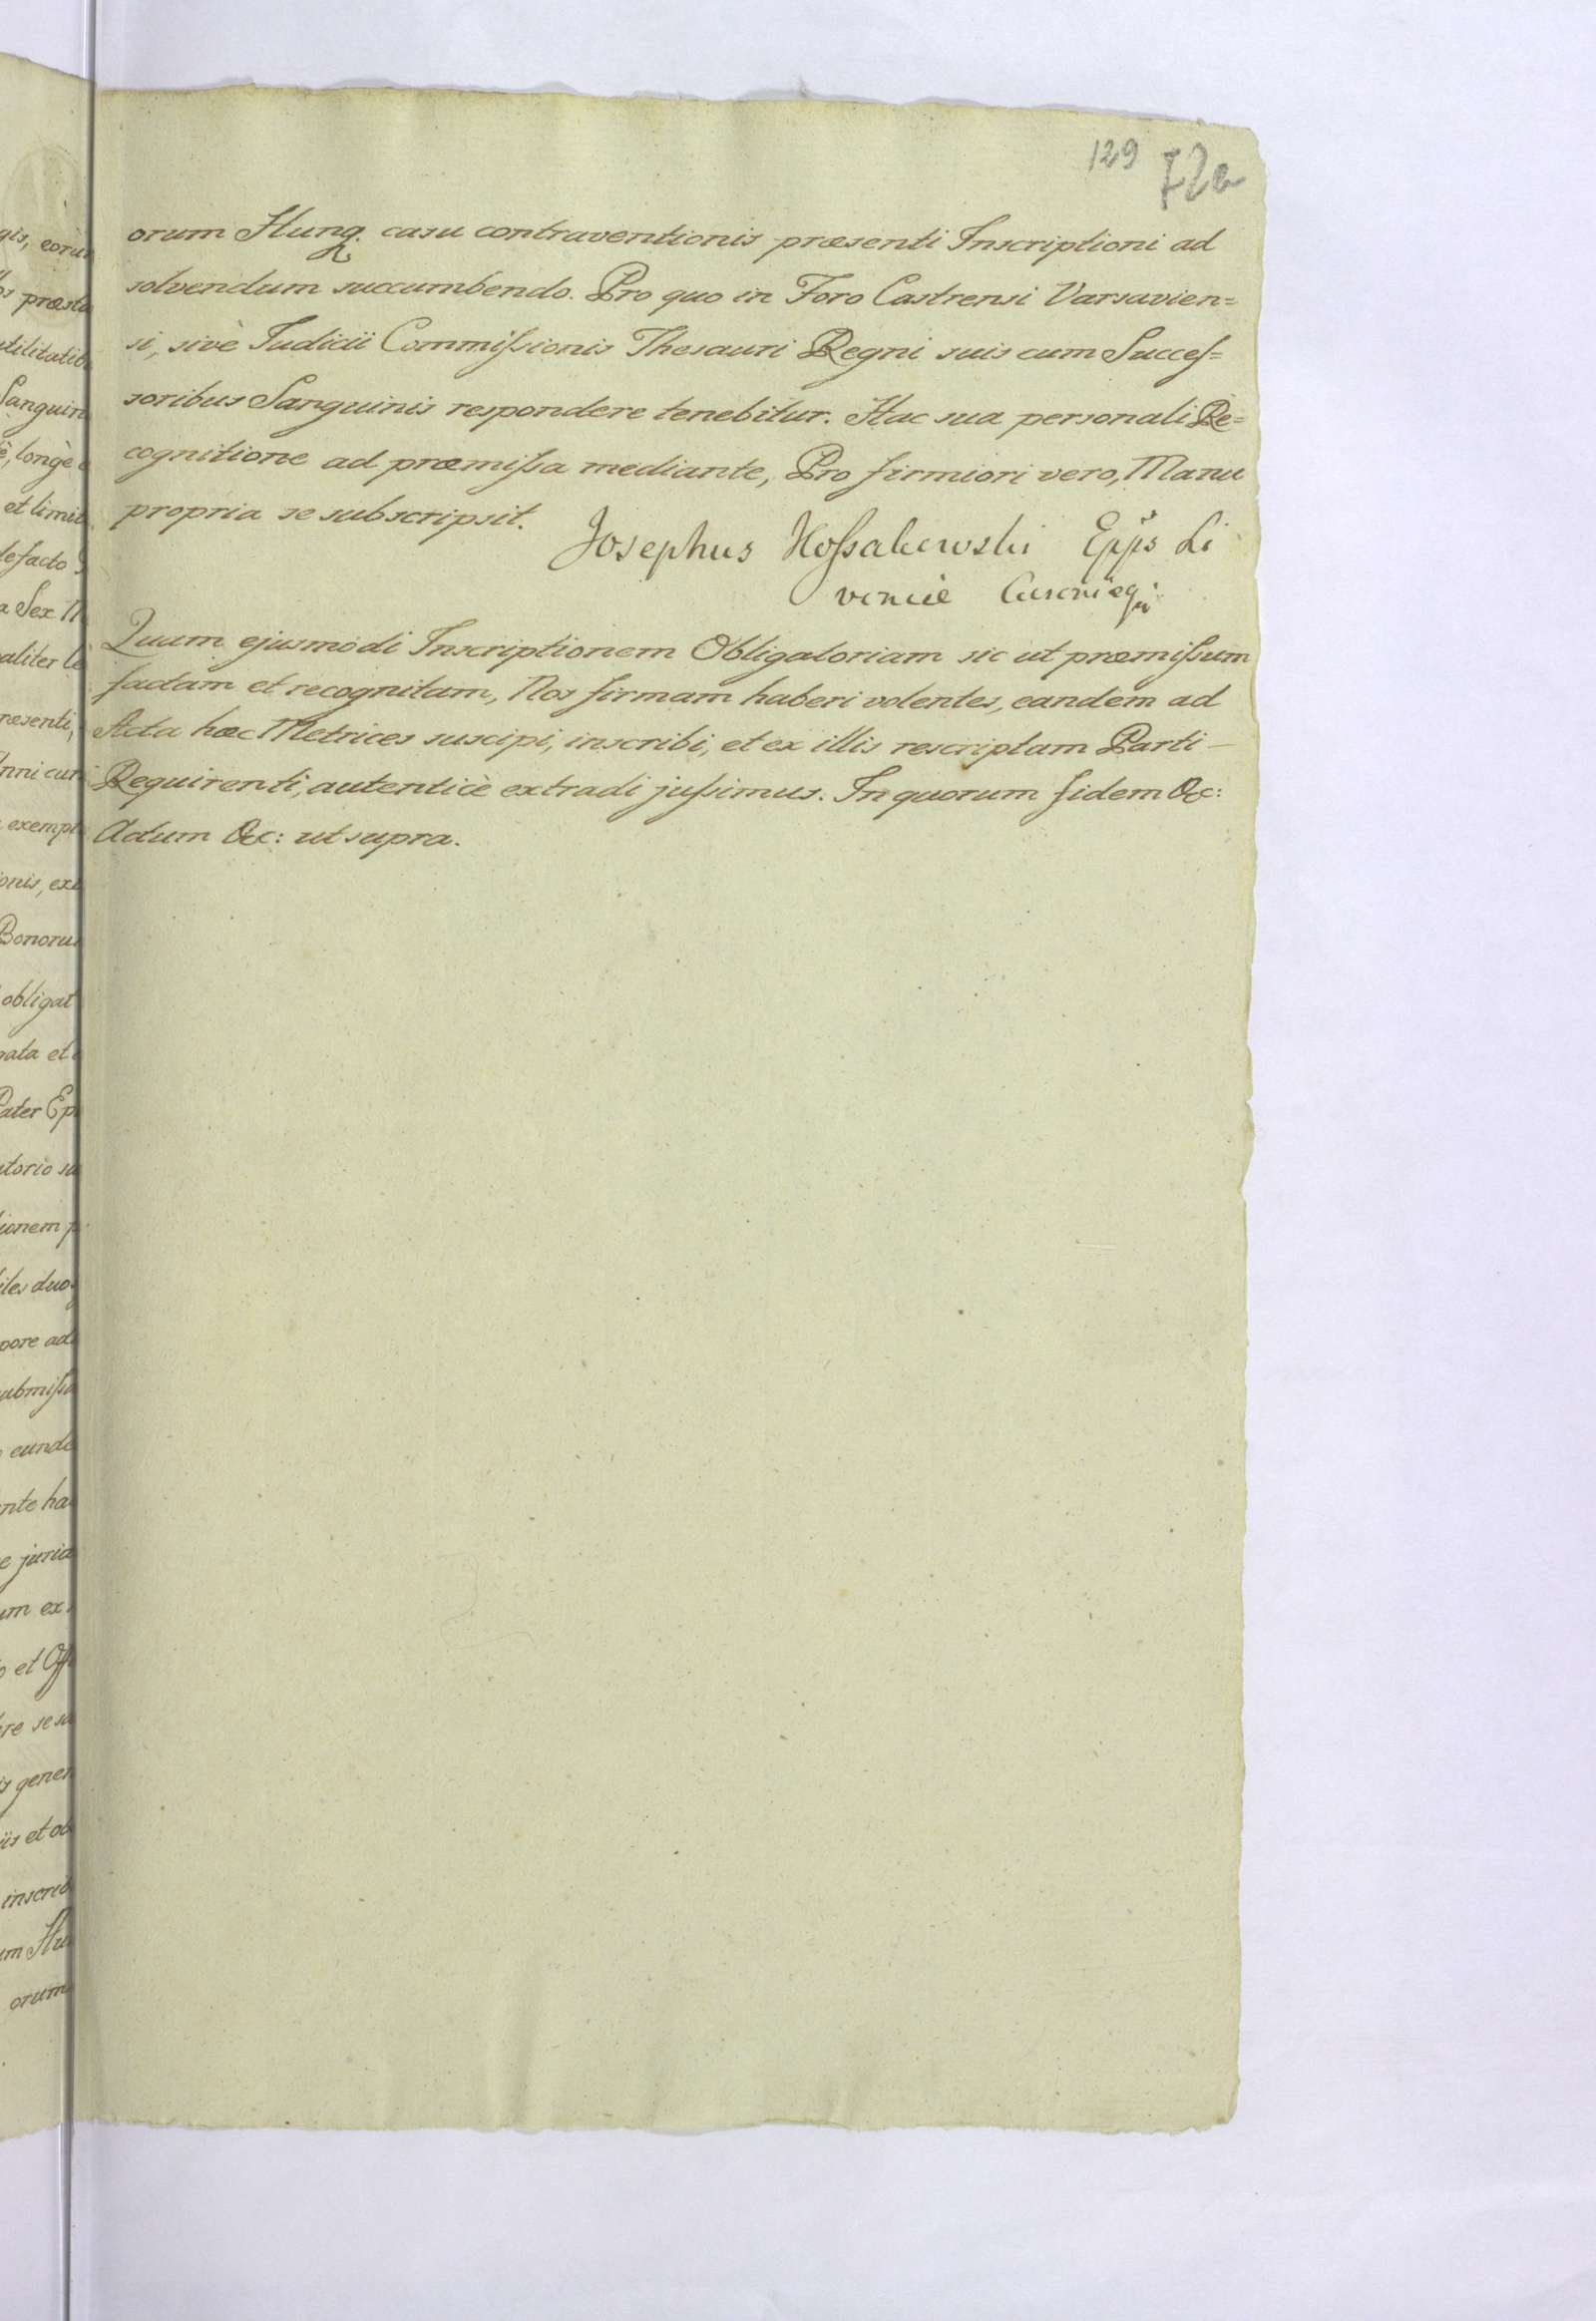 129 72a
orum Hung. casu contraventionis præsenti Inscriptioni ad
solvendum succumbendo. Pro quo in Foro Castrensi Varsavien=
si, sivè Judicii Commiſsionis Thesauri Regni suis cum Succeſ=
soribus Sanguinis respondere tenebitur. Hac sua personali Re=
cognitione ad præmiſsa mediante, Pro firmiori vero, Manu
propria se subscripsit.
Josephus Koſsakowski Epp̃s Li
voniæ
Quum ejusmodi Inscriptionem Obligatoriam sic ut præmiſsum
factam et recognitam, Nos firmam haberi volentes, eandem ad
Acta hæc Metrices suscipi, inscribi, et ex illis rescriptam Parti –
Requirenti, autenticè extradi juſsimus. In quorum fidem &c:
Actum &c: ut supra.
gis, eoru
Sanguin
longè
et limit
defacto
a Sex
aliter
exemp
onis, ex
Bonoru
obligat
ata et
Pater Ep
torio su
ionem
iles duo
pore ad
ubmiſsa
eunde
nte ha
e jurid
um ex
o et Off
re se su
is gener
iis et ob
inscrib
um Hu
orum